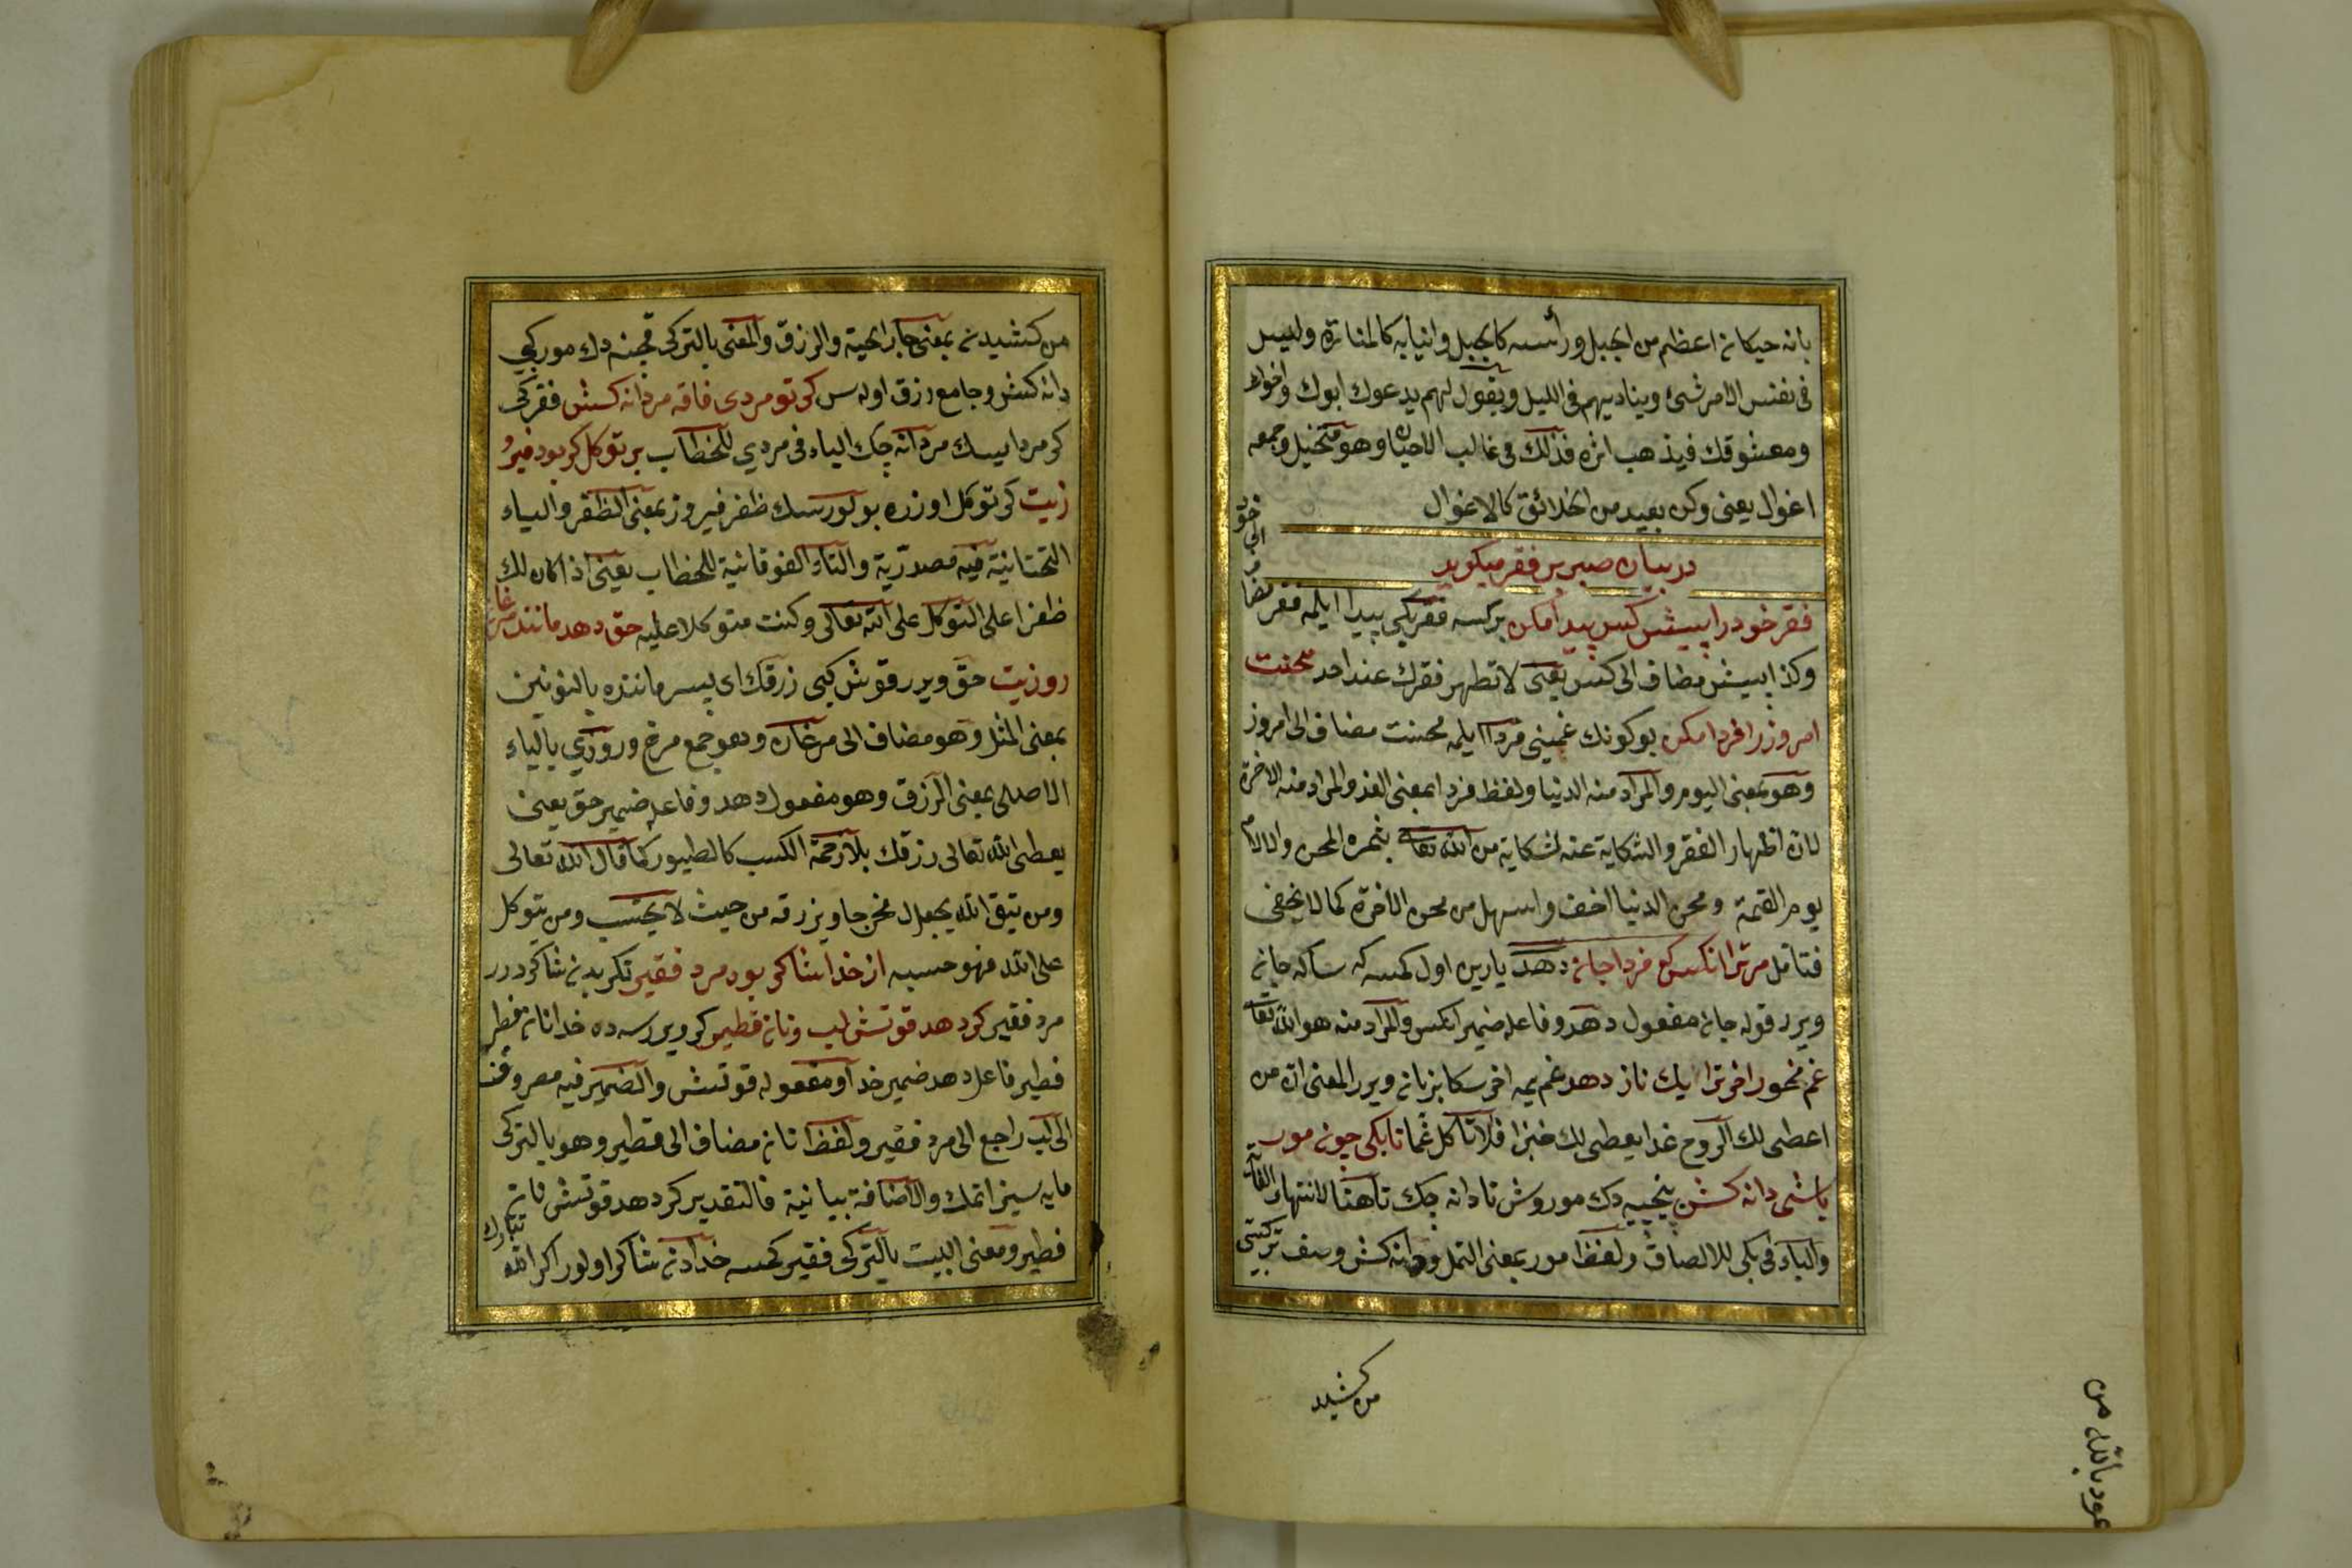 بانه حيكان اعظم من الجبل ورأسه كالجبل وانيابه كالمنارة وليس
فى نفس الامر شئ ويناديهم فى الليل ويقول لهم يدعوك ابوك واخوك
ومعشوقك فيذهب اثره فذلك فى غالب الاحيان وهو متخيل وجمعه
اغوال يعنى وكن بعيد من الخلائق كالاغوال
در بيان صبر بر فقر ميكويد
فقر خود را پيش كس پيدا مكن بر كسه فقريكى پيدا ايلمه فقر مضاف
الى خود
وكذا پيش مضاف الى كس يعنى لا تظهر فقرك عند احد محنت
امروز را فردا مكن بوكونك غمينى فردا ايلمه محنت مضاف الى امروز
وهو بمعنى اليوم والمراد منه الدنيا ولفظ فردا بمعنى الغد والمراد منه الاخرة
لان اظهار الفقر والشكاية عنه شكاية من الله تعالى يثمره المحن والالام
يوم القيمة ومحن الدنيا اخف واسهل من محن الاخرة كما لا يخفى
فتامل مر ترا انكس كه فردا جان دهد يارين اول كمسه كه سكا جان
ويرر قوله جان مفعول دهد وفاعله ضمير انكس والمراد منه هو الله تعالى
غم مخور اخر ترا يك نان دهد غم يمه اخر سكا بر نان ويرر المعنى ان من
اعطى لك الروح غدا يعطى لك خبزا فلا تاكل غما تا بكى چون مور
باشى دانه كش نيجه يه دك مور وش تا دانه چك تا هنا لانتهاء الغاية
والباء فى بكى للالصاق ولفظ مور بمعنى النمل ودانه كش وصف تركيبى
من كشيد
من كشيدن بمعنى جار الحبة والرزق والمعنى بالتركى قچنه دك مور كبى
دانه كش وجامع رزق اوله سن كر تو مردى فاقه مردانه كش فقركى
كر مرد ايسك مردانه چك الياء فى مردي للخطاب بر توكل كر بود فيرو
زيت كر توكل اوزره بولورسك ظفر فيروز بمعنى الظفر والياء
التحتانية فيه مصدرية والتاء الفوقانية للخطاب يعنى اذا كان لك
ظفرا على التوكل على الله تعالى وكنت متوكلا عليه حق دهد مانند مرغان
روزيت حق ويرر قوش كبى رزقك اى پسر ماننده بالنونين
بمعنى المثل وهو مضاف الى مرغان وهو جمع مرغ وروزي بالياء
الاصلى بمعنى الرزق وهو مفعول دهد وفاعله ضمير حق يعنى
يعطى الله تعالى رزقك بلا زحمة الكسب كالطيور كما قال الله تعالى
ومن يتق الله يجعل له مخرجا ويرزقه من حيث لا يحتسب ومن يتوكل
على الله فهو حسبه از خدا شاكر بود مرد فقير تكريدن شاكر درر
مرد فقير كر دهد قوتش لب ونان فطير كر ويررسه ده خدا نان فطير
فطير فاعل دهد ضمير خدا ومفعوله قوتش والضمير فيه مصروف
الى لب راجع الى مرد فقير ولفظ نان مضاف الى فطير وهو بالتركى
مايه سيز اتمك والاضافة بيانية فالتقدير كر دهد قوتش نان
فطير ومعنى البيت بالتركى فقير كمسه خدادن شاكر اولور اكر الله
تبارك